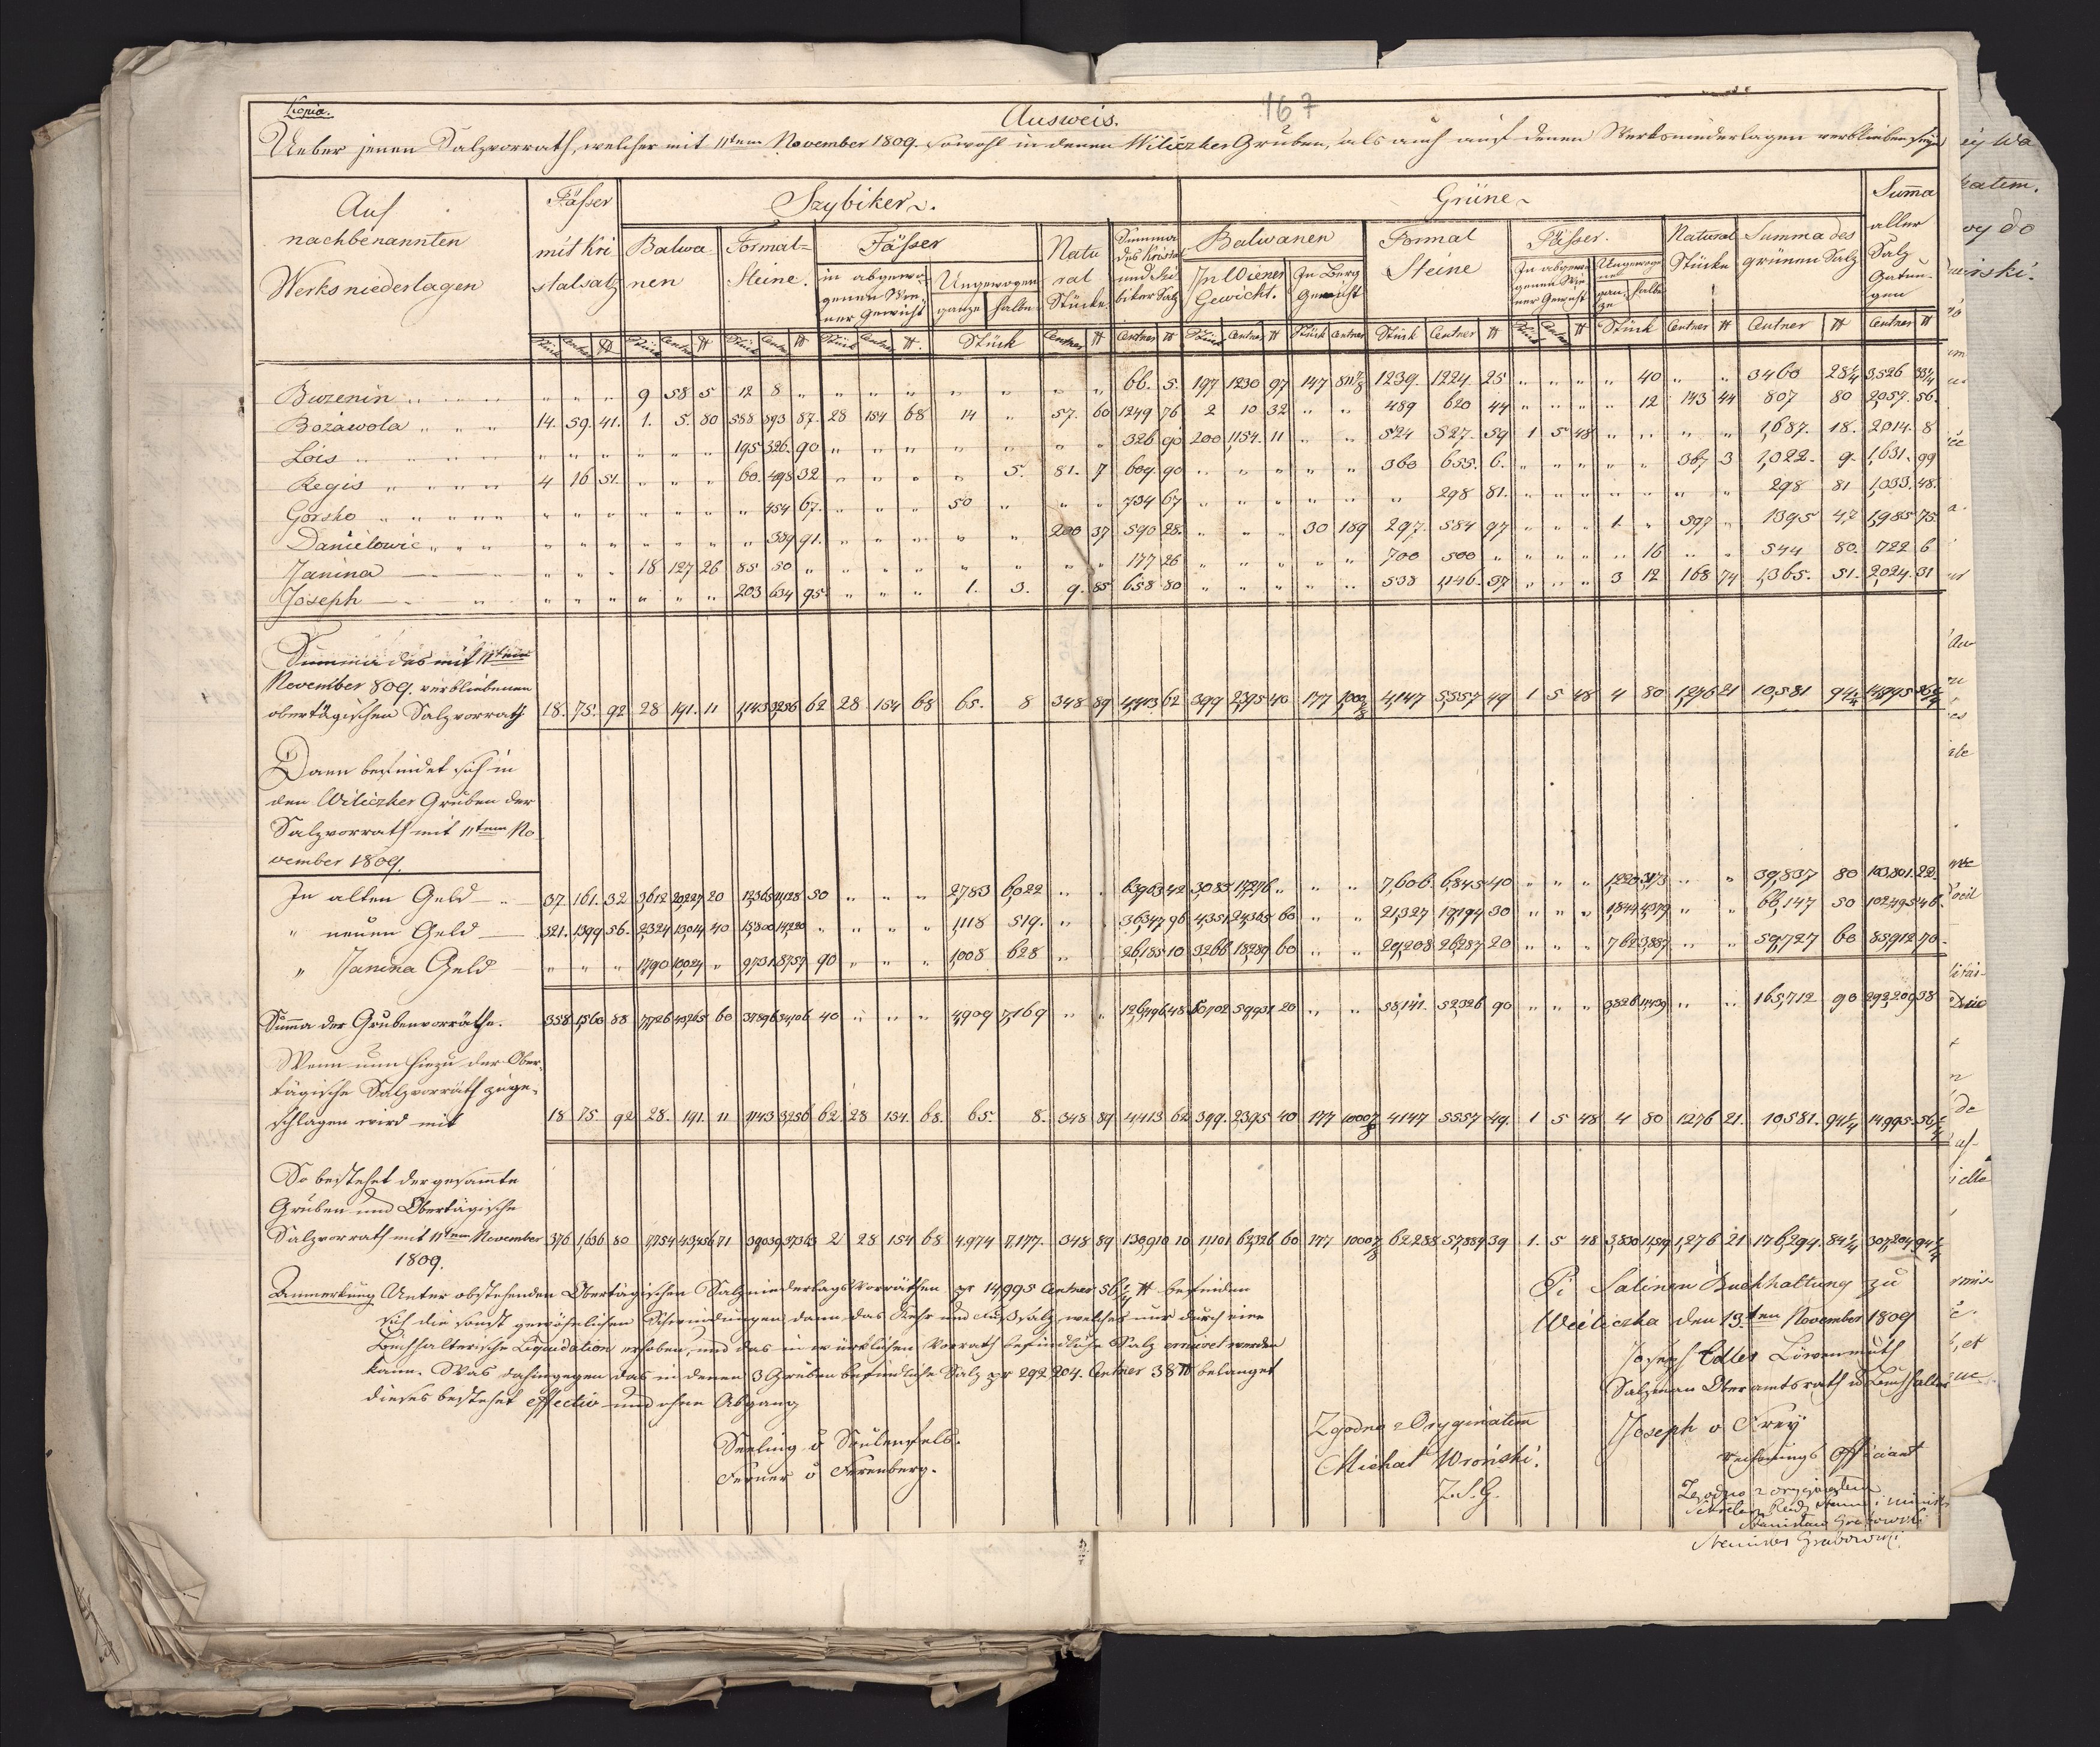 Kopia.
167
Ausweis.
Ueber jenen Salzvorrath, welcher mit 11tem November 1809. sowohl in denen Wiliczker Gruben, als auch auf denen Werksniederlagen verblieben
Auf
nachbenannten
Werksniederlagen
Fässer
mit Kri
stalsalz
Szybiker
Balwa
nen
Formal-
Steine.
Fässer
in abgewo-
genen Wie-
ner Gewicht
Ungewogen
ganze halbe
Natu
ral
Stücke
Summa
des Kristal
und Szi
biker Salz
Grüne
Balwanen
In Wiener
Gewicht.
In Berg
Gewicht
Formal
Steine
Fässer.
In abgewo
genen Wie
ner Gewicht
Ungewoge
nen
gan
ze
halbe
Natural
Stücke
Summa des
grünen Salz
Summa
aller
Salz
Gattun-
gen
Stück Centner ℔ Stück Centner ℔ Stück Centner ℔ Stück Centner ℔ Stück Centner ℔ Centner ℔ Stück Centner ℔ Stück Centner Stück Centner ℔ Stück Centner ℔ Stück Centner ℔ Centner ℔ Centner ℔
Buzenin 9 58 5 12 8 66. 5. 197 1230 97 147 811 7/8 1239. 1224. 25 40 3460 28 1/4 3,526 33 1/4
Bozawola 14. 59. 41. 1. 5. 80 588 593 87. 28 154 68 14 57. 60 1249 76 2 10 32 489 620 44 12 143 44 807 80 2,057. 56.
Lois 195 326. 90 326 90 200 1,154. 11 524 527. 59 1 5 48 1,687. 18. 2014. 8
Regis 4 16 51. 60. 495 32 5. 81. 7 609. 90 360 655. 6. 367 3 1,022. 9. 1,631. 99
Gorsko 454 67. 50 734 67 298 81. 298 81 1,033. 48.
Danielowic 389 91. 200 37 590 28. 30 189 297. 584 97 1. 597 1395 47 1,985 75.
Janina 18 127 26 85 50 177 26 700 500 16 544 80. 722 6
Joseph 203 634 95. 1. 3. 9. 85 658 80 538 1,146. 37 3 12 168 74 1,365. 51. 2,024. 31
Summa des mit 11tem
November 809. verbliebenen
obertägischen Salzvorrath 18. 75. 92 28 191. 11 1,143 3,256 62 28 154 68 65. 8 348 89 4,413 62 399 2,395 40 177 1,000 7/8 4,147 5,557 49 1 5 48 4 80 1,276 21 10,581 94 1/4 14,995 56 1/4
Dann befindet sich in
den Wiliczker Gruben der
Salzvorrath mit 11tem No
vember 1809.
In alten Geld 37. 161. 32 3,612 20,227 20 12,365 11,128 50 2,783 6,022 63,963 42 3,085 17,276 7,606. 6,845 40 1,220 3,173 39,837 80 103,801. 22.
" neuen Geld 321. 1399 56. 2,324 13,014 40 15,800 14,220 1,118 519. 36,347 96 4,351 24,365 60 21,327 19,194 30 1,844 4,379 66,147 50 102,495 46.
" Janina Geld 1,790 10,024 9,731 8,757 90 1,008 628 26,185 10 3,266 18,289 60 29,208 26,287 20 762 3,887 59,727 60 85,912 70
Summa der Grubenvorräthe. 358. 1,560 88 7,726 43,265 60 37,896 34,106 40 4,909 7,169 126,496 48 10,702 59,931 20 58,141. 52,326 90 3,826 11,439 165,712 90 292,209 38
Wenn nun hiezu der Ober-
tägische Salzvorrath zuge-
schlagen wird mit 18 75. 92 28. 191. 11 1,143 3,256 62. 28 154. 68. 65. 8. 348 89 4,413 62 399. 2,395 40 177 1000 7/8 4147 5557 49. 1 5 48 4 80 1276 21. 10,581. 94 1/4 14,995. 56 1/4
So bestehet der gesamte
Gruben und Obertägische
Salzvorrath mit 11ten November 376 1,636 80 7,754 43,456 71 39,039 37,363 2 28 154 68 4,974 7,177. 348 89 130,910 10 11,101 62,326 60 177 1000 7/8 62,288 57,884 39 1. 5 48 3,830 11,519 1,276 21 176,294. 84 1/4 307,204 94 1/4
1809.
Anmerkung Unter obstehenden Obertägischen Salzniederlags Vorräthen pr 14,995 Centner 56 1/4 ℔ befinden
sich die sonst gewöhnlichen Schwindungen dann das Kehr und Fußsalz, welches nur durch eine
Buchhalterische Liquidation erhoben, und das in würklichen Vorrath befindliche Salz eruiret werden
kann. Was dahingegen das in denen 3 Gruben befindliche Salz pr 292,204. Centner 38 ℔ belanget
dieses bestehet effectiv und ohne Abgang
Seeling v Saulenfels.
Ferner v Fernberg.
Pr Salinen Buchhaltung zu
Wieliczka den 13.ten November 1809
Joseph Edler Löwenmuth
Salzman Oberamtsrath u Buchhalter
Joseph v Frey
rechnungs Officiant
Zgodno z Oryginałem
Michał Wroński.
Z.S.G.
Zgodno z oryginałem
Sekretarz Rady Stanu i minist
Stanisław Grabowski
Stanisław Grabowski